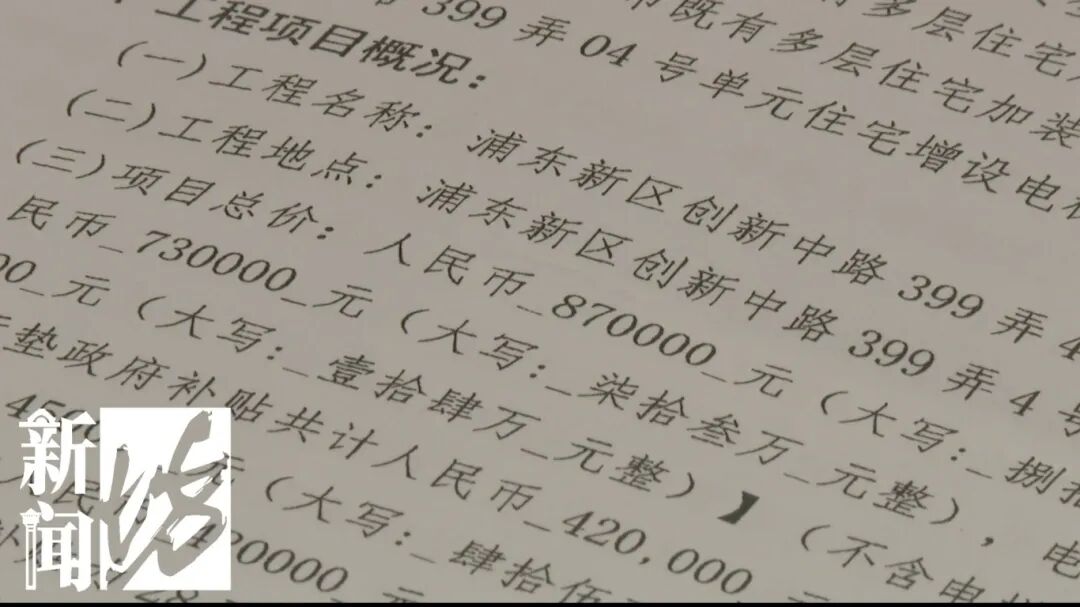 399 弄 04 号单元住宅增设电梯
既有多层住宅加装
多层住宅
工程项目概况：
(一)工程名称：浦东新区创新中路 399 弄 4
(二)工程地点：浦东新区创新中路 399 弄 4 号
(三)项目总价：人民币_870000_元（大写:_捌拾
民币_730000_元（大写:_柒拾叁万_元整），电
00_元（大写:_壹拾肆万_元整）】（不含电
垫政府补贴共计人民币_420,000
元（大写:_肆拾伍
新闻坊